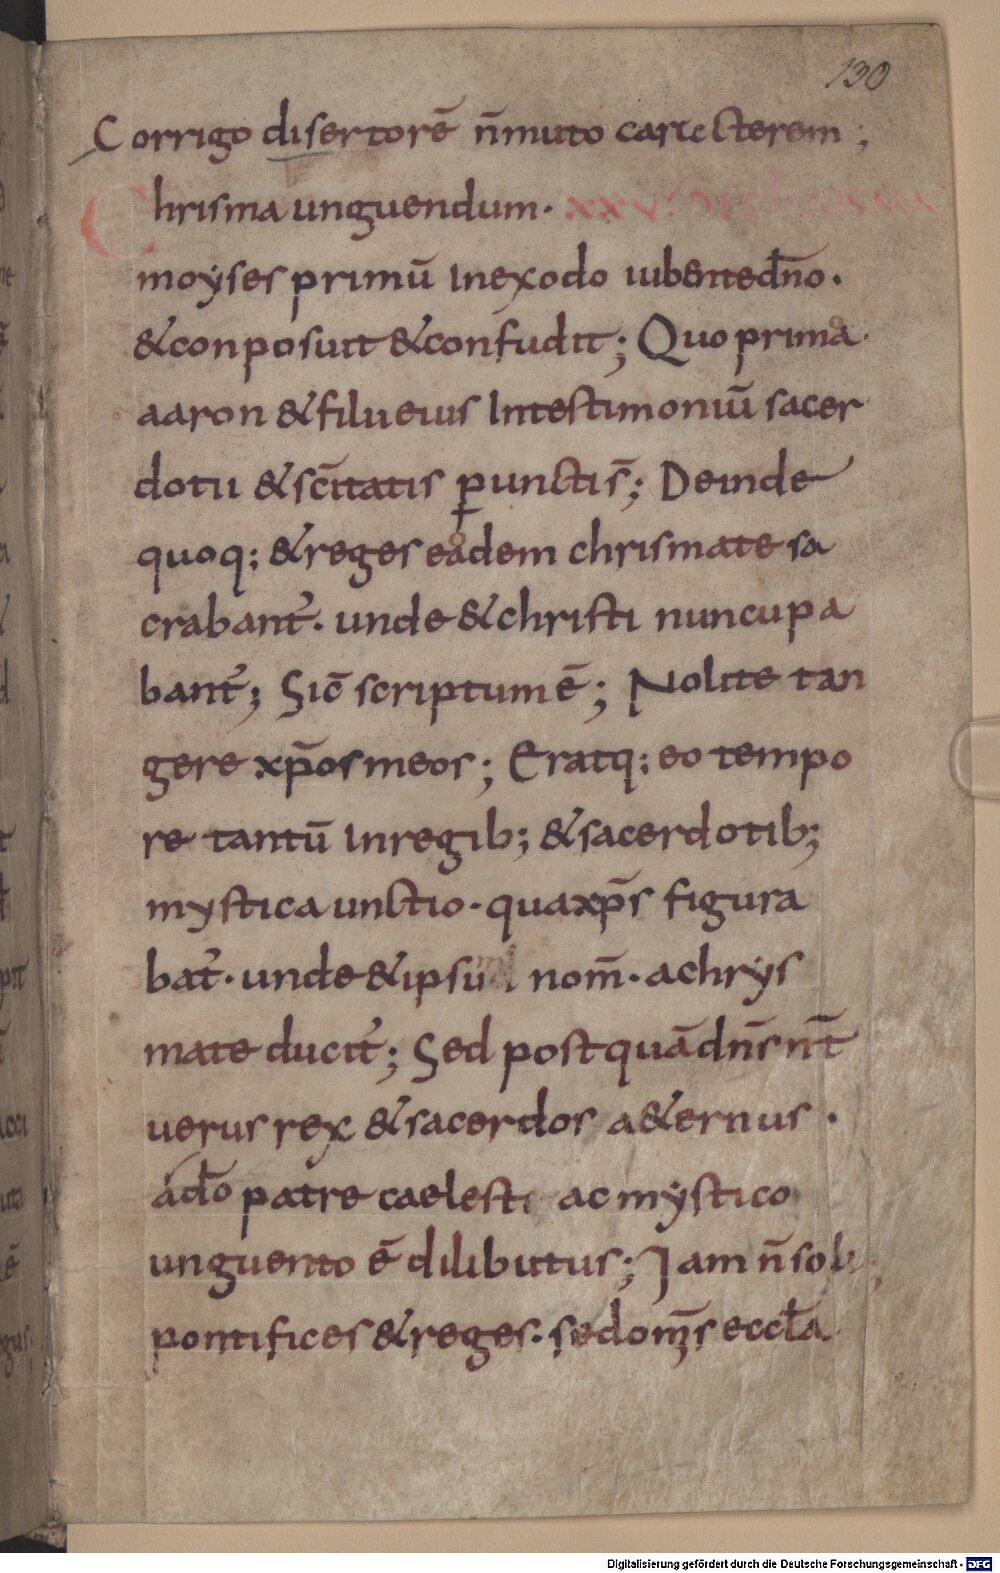 130
Corrigo disertorē n̄muto carrecterem;
Chrisma unguendum· xxvi De Chrisma
moẏses primū Inexodo iubented̄no·
&conposuit &confudit; Quo prima
aaron &filii eius Intestimoniū sacer
dotii &sc̄itatis ꝑunctis̄; Deinde
quoq; &reges eadem chrismate sa
crabant̓· unde &christi nuncupa
bant̓; Sic̄ scriptum ē; Nolite tan
gere xp̄os meos; Eratq; eo tempo
re tantū Inregib; &sacerdotib;
mystica unctio· qua xp̄s figura
bat̓· unde &ipsū nom̄· achrẏs
mate ducit̓; Sed postquā dn̄s nr̄
uerus rex &sacerdos a&ernus·
ad̄o patre caelesti ac mẏstico
unguento ē dilibutus; Iam n̄ soli;
pontifices &reges· sed om̄s eccl̄a
Digitalisierung gefördert durch die Deutsche Forschungsgemeinschaft - DFG